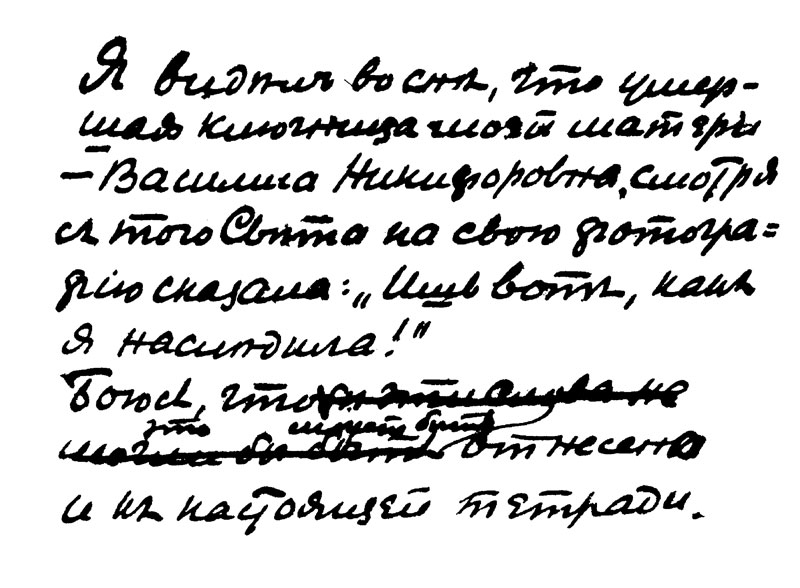 Я видѣлъ во снѣ, что умер-
шая ключница моей матери
— Василиса Никифоровна, смотря
съ того Свѣта на свою фотогра=
фію сказала: „Ишь вотъ, какъ
я наслѣдила!"
Боюсь, что бы эти слова не
это может быть
могли бы быть отнесено
и къ настоящей тетради.